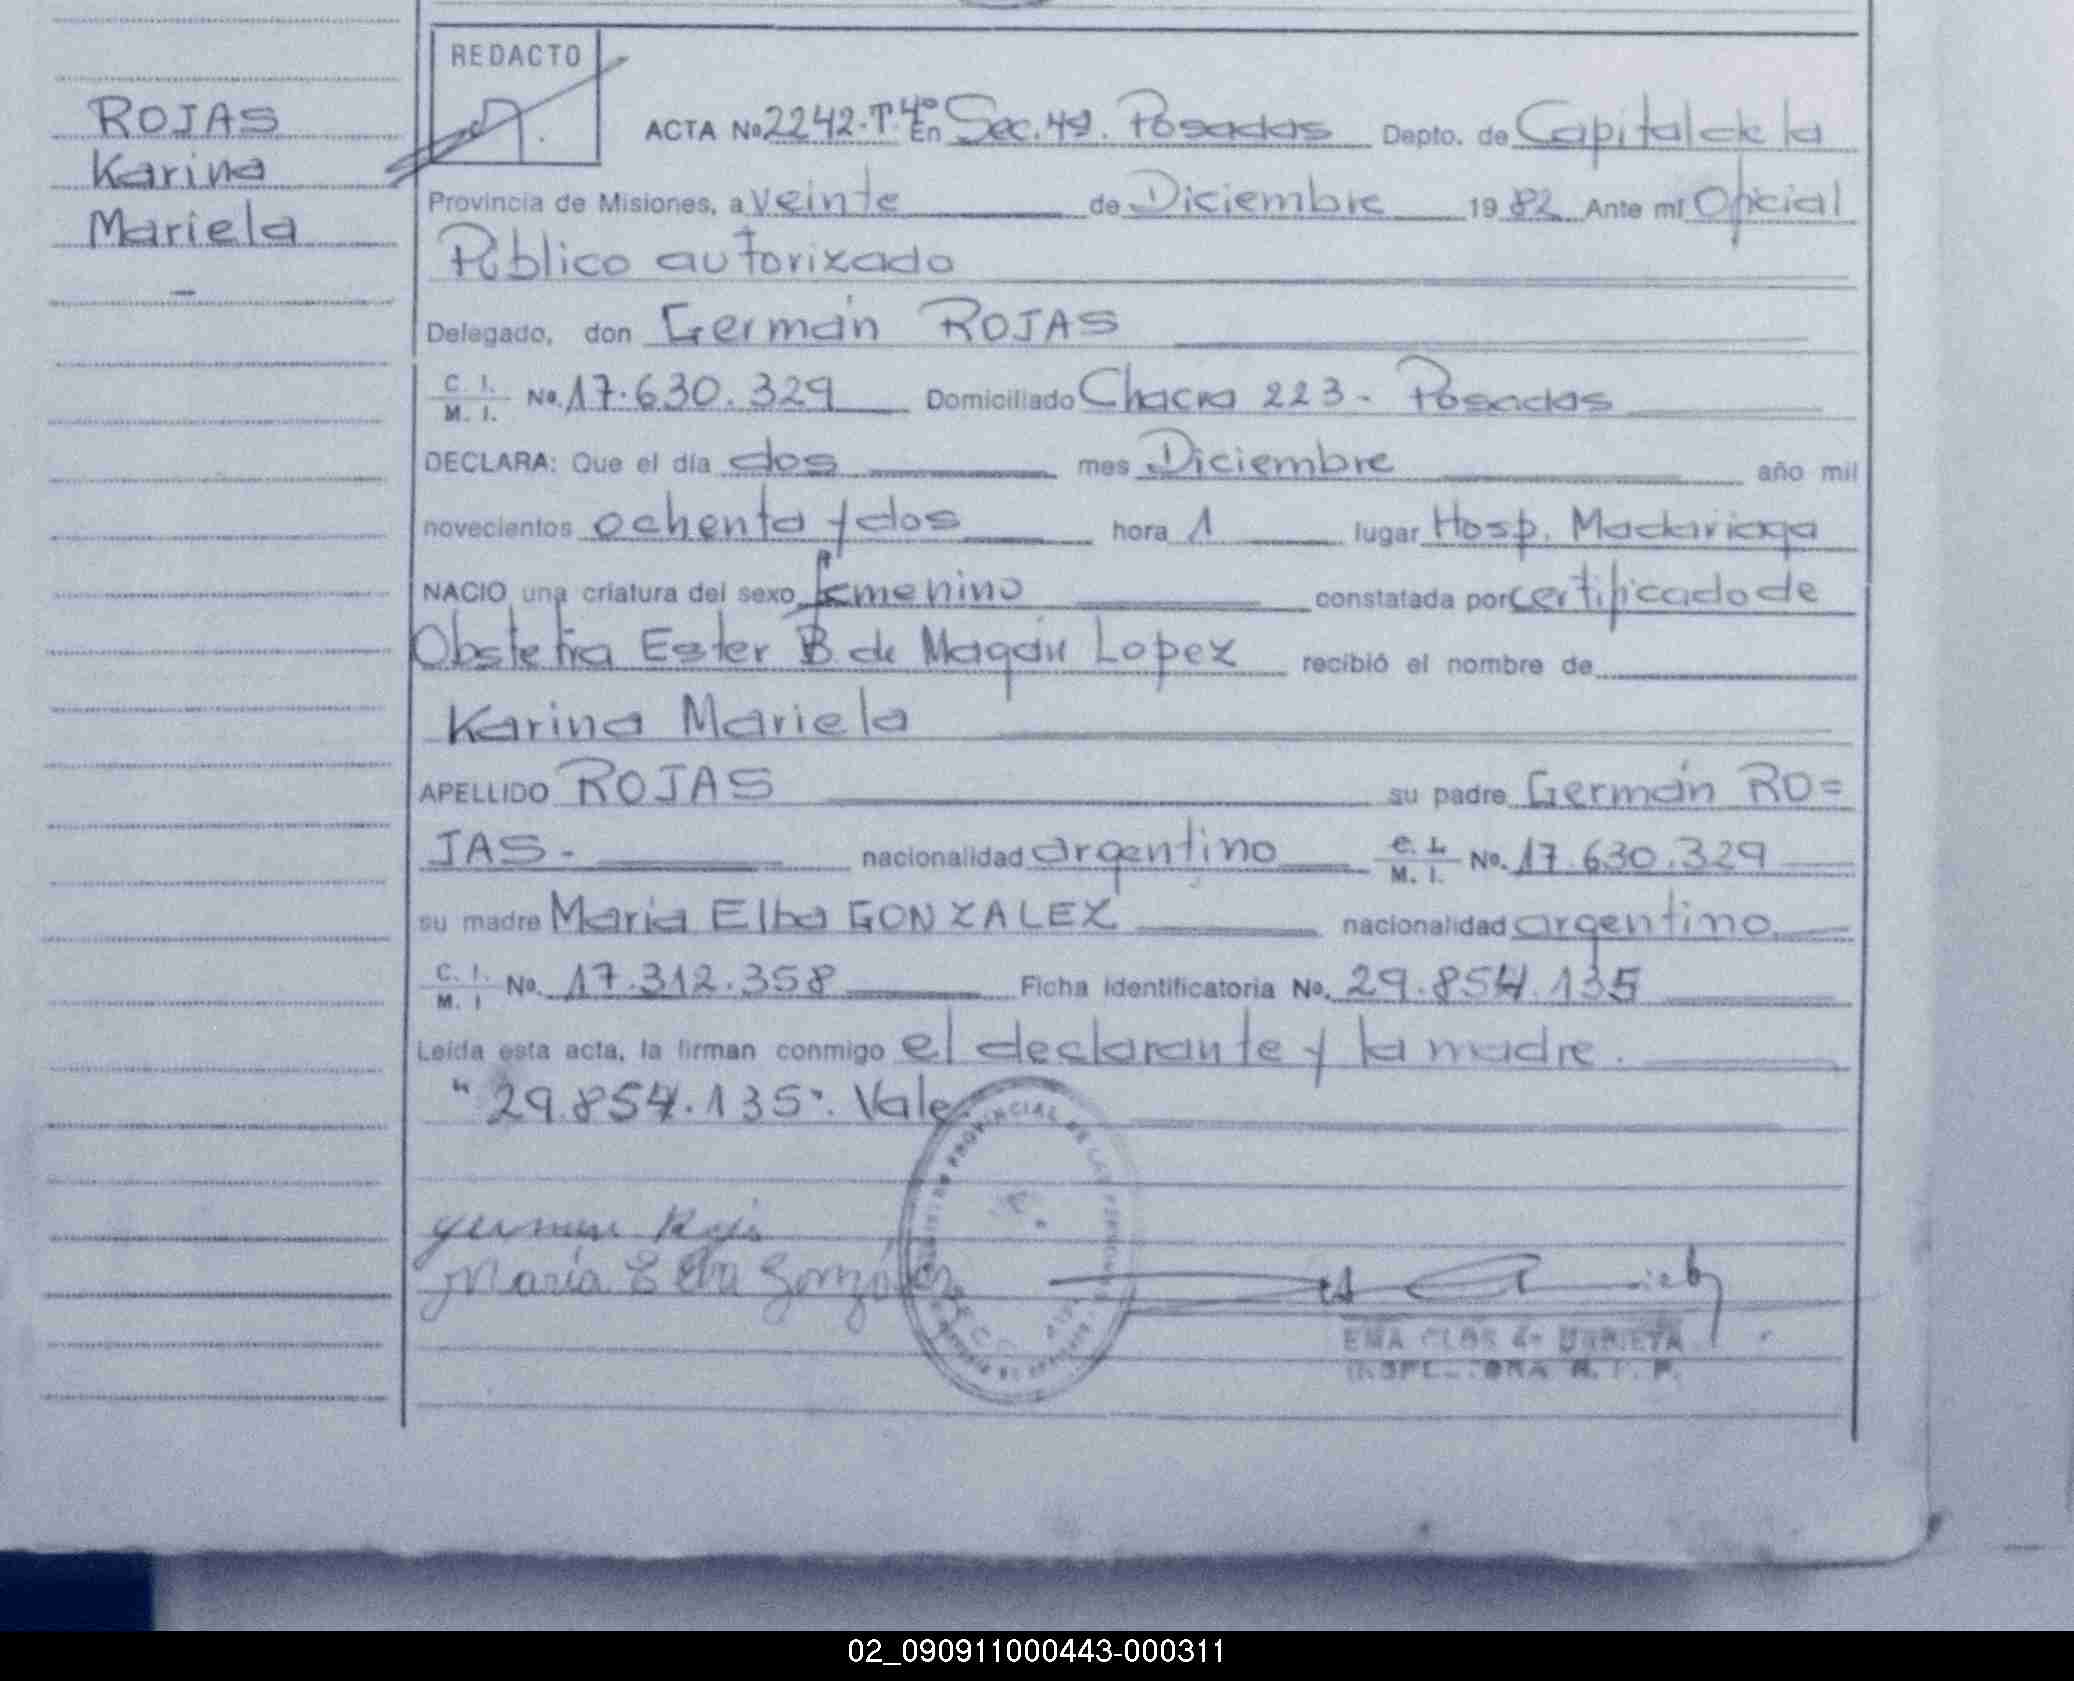 ROJAS
Karina
Mariela
REDACTO
ACTA No 2242-Tº4º En Sec. 4ª. Posadas Depto. de Capital de la
Provincia de Misiones, a veinte de Diciembre 1982 Ante mí Oficial
Público autorizado
Delegado, don Germán ROJAS
C. I. M. I. No. 17.630.329 Domiciliado Chacra 223 - Posadas
DECLARA: Que el día dos mes Diciembre año mil
novecientos ochenta y dos hora 1 lugar Hosp. Madariaga
NACIO una criatura del sexo femenino constatada por certificado de
Obstetra Ester B de Magán Lopez recibió el nombre de
Karina Mariela
APELLIDO ROJAS su padre Germán RO=
JAS - nacionalidad argentino C. I. M. I. No. 17.630.329
su madre Maria Elba GONZALEZ nacionalidad argentino
C. I. M. I No. 17.312.358 Ficha identificatoria No. 29.854.135
Leída esta acta, la firman conmigo el declarante y la madre.
"29.854.135". Vale
german Rojas
María Elba Gonzále
PROVINCIAL DE LAS PERSONAS
EMA CLOS de URRIETA
02_090911000443-000311